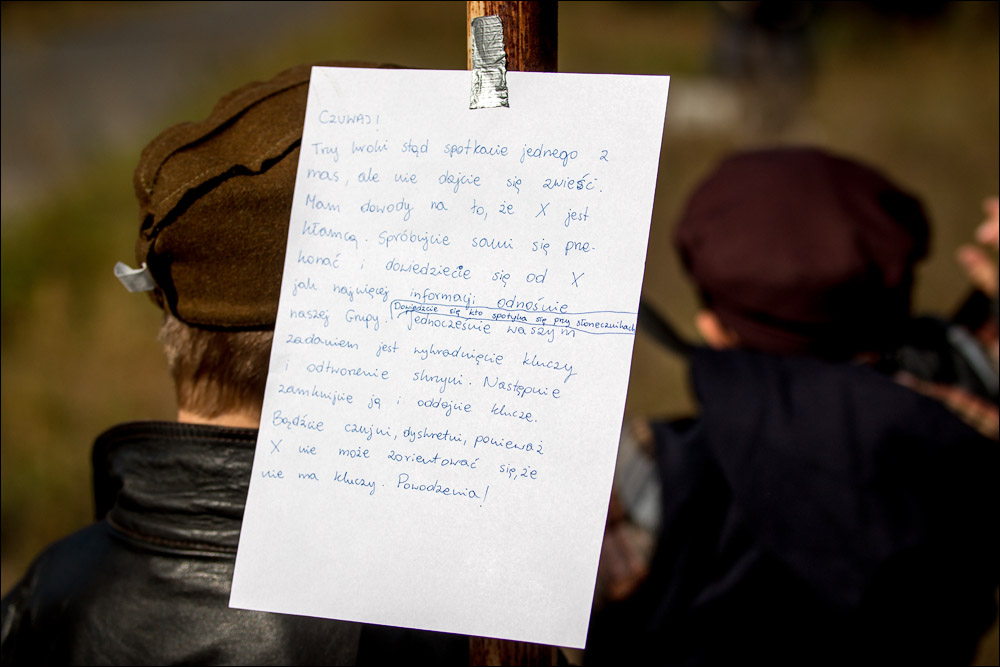 CZUWAJ!
Trzy kroki stąd spotkacie jednego z
nas, ale nie dajcie się zwieść.
Mam dowody na to, że X jest
kłamcą. Spróbujcie sami się prze-
konać i dowiedziecie się od X
jak najwięcej informacji odnośnie
naszej Grupy.
Dowiedzcie się kto spotyka się przy słonecznikach
Jednocześnie waszym
zadaniem jest wykradnięcie kluczy
i odtworzenie skrzyni. Następnie
zamknijcie ją i oddajcie klucze.
Bądźcie czujni, dyskretni, ponieważ
X nie może zorientować się, że
nie ma kluczy. Powodzenia!